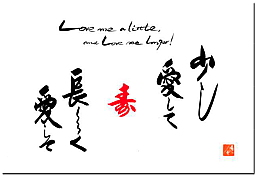 Love me a little,
and Love me longer!
少し
愛して
寿
長〜く
愛して